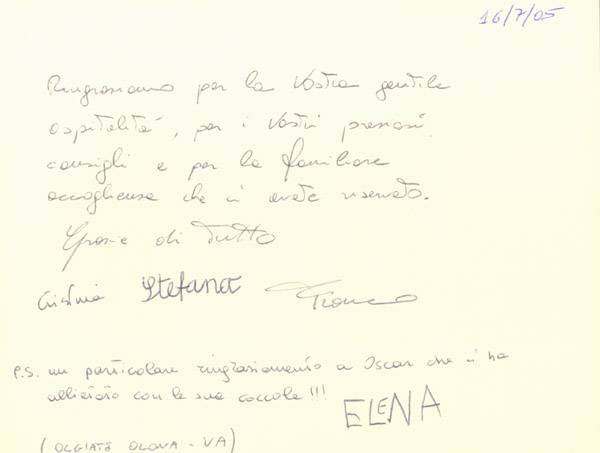 16/7/05
Ringraziamo per la Vostra gentile
ospitalità, per i Vostri preziosi
consigli e per la familiare
accoglienza che ci avete riservato.
Grazie di tutto
Cristina Stefana Franco
P.S. un particolare ringraziamento a Oscar che ci ha
allietato con le sue coccole!!!
ELENA
(OLGIATE OLONA - VA)